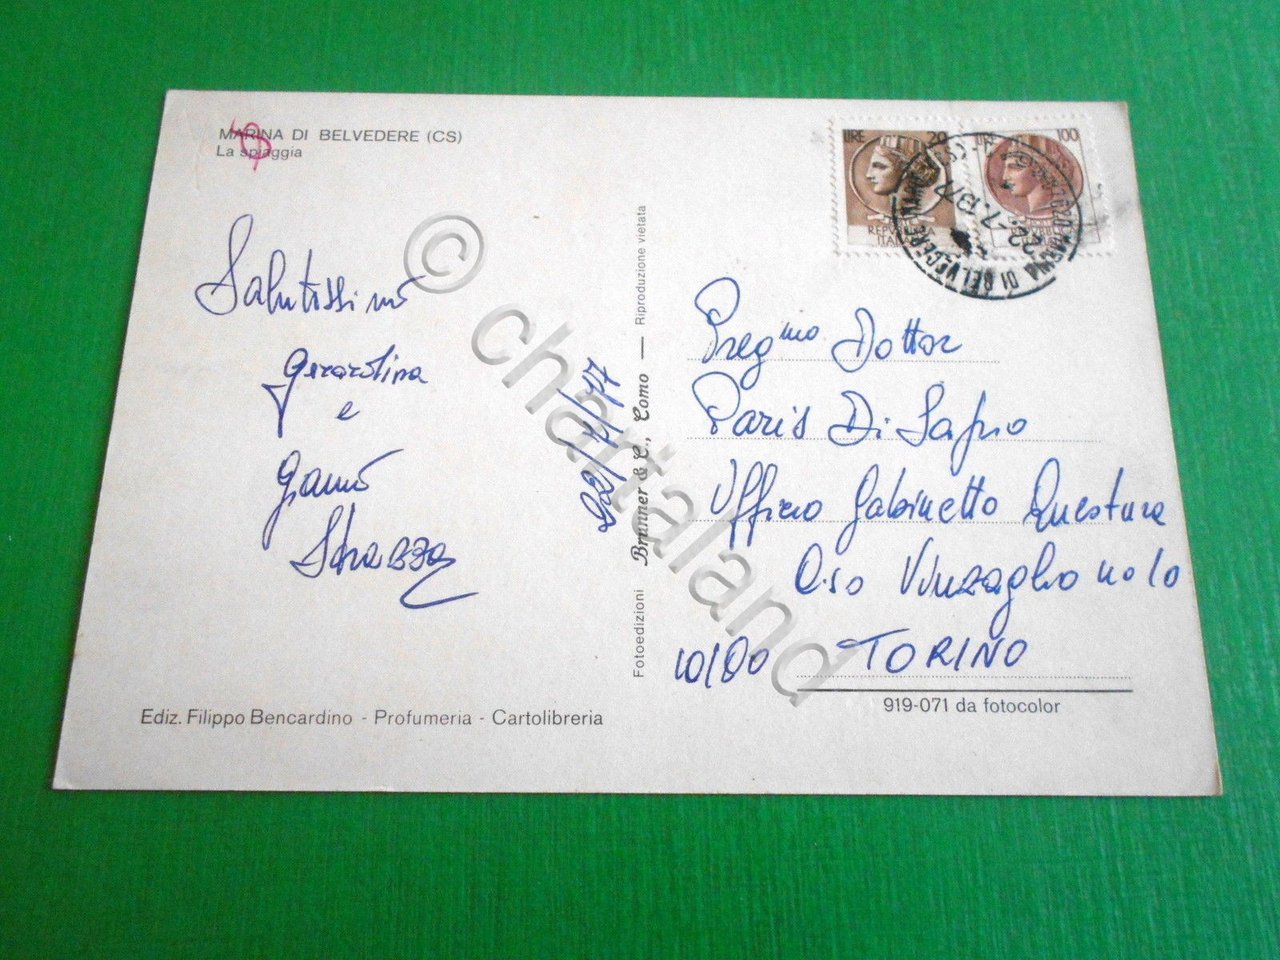 MARINA DI BELVEDERE (CS)
La spiaggia
Salutissimi
Gerardina
e
Gianni
Strazza
22/7/77
Fotoedizioni Brunner & C., Como — Riproduzione vietata
LIRE 20
REPVBBLICA
ITALIANA
LIRE 100
22-7-1977
MARINA DI BELVEDERE
Preg.mo Dottor
Paris Di Safno
Ufficio Gabinetto Questura
C.so Vinzaglio no 10
10100 TORINO
919-071 da fotocolor
Ediz. Filippo Bencardino - Profumeria - Cartolibreria
© chartaland